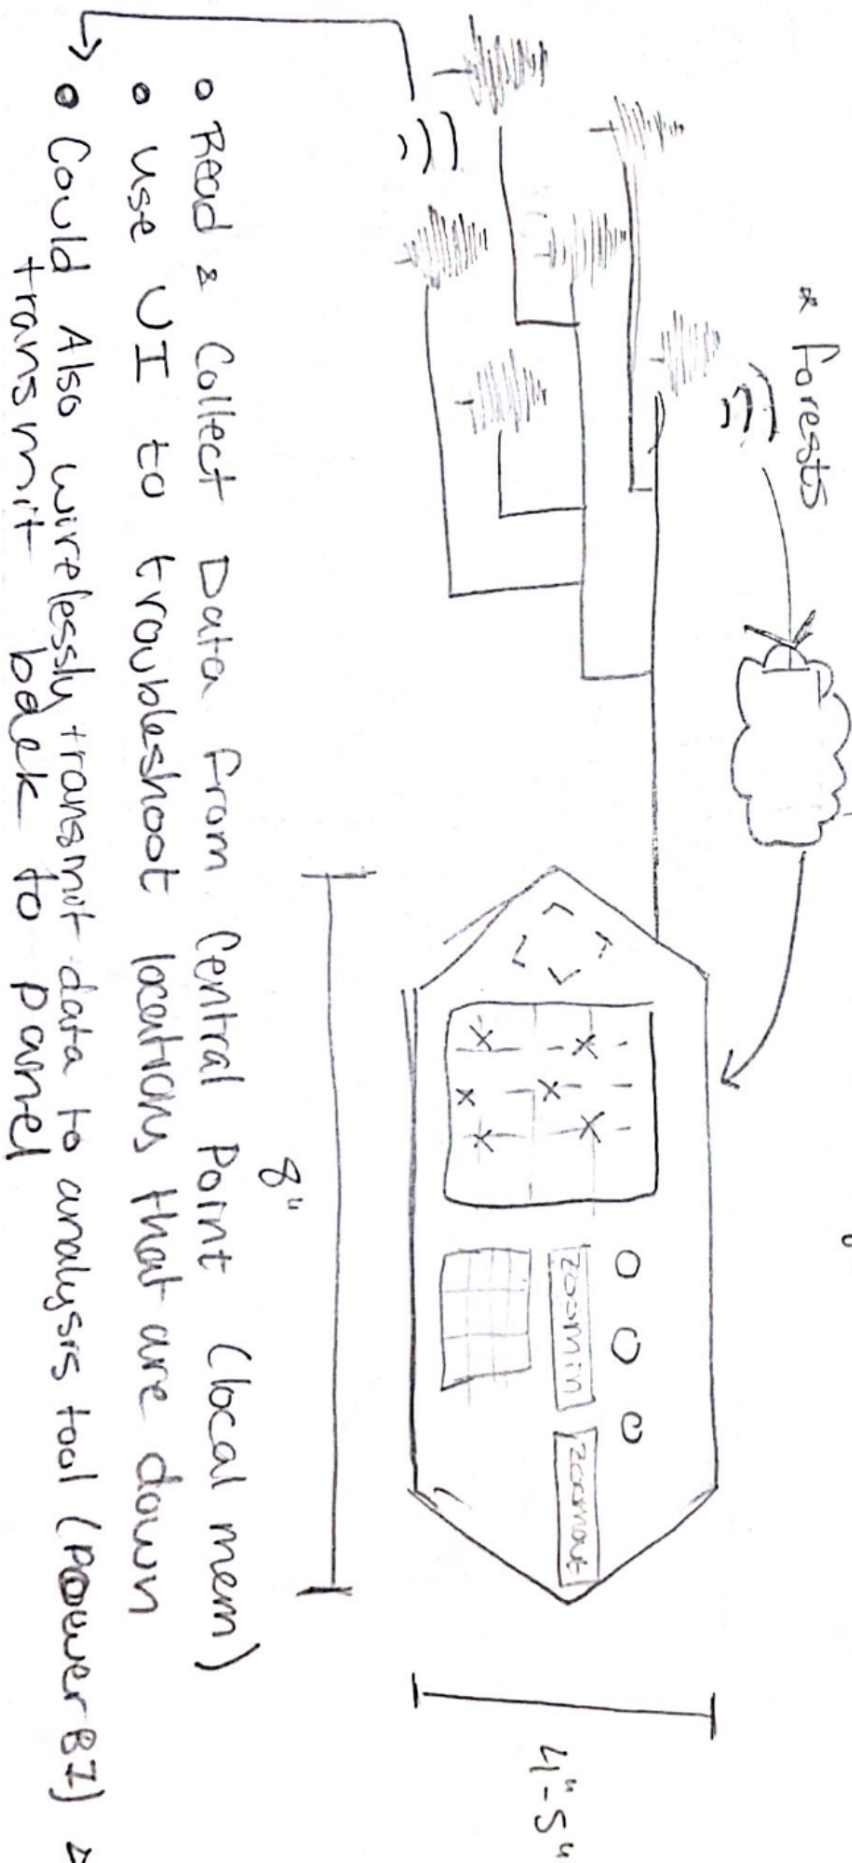 * Forests
Zoomin
Zoomout
8"
4"-5"
Read & Collect Data From Central Point (local mem)
use UI to troubleshoot locations that are down
Could Also wirelessly transmit data to analysis tool (PowerBI) &
transmit back to panel